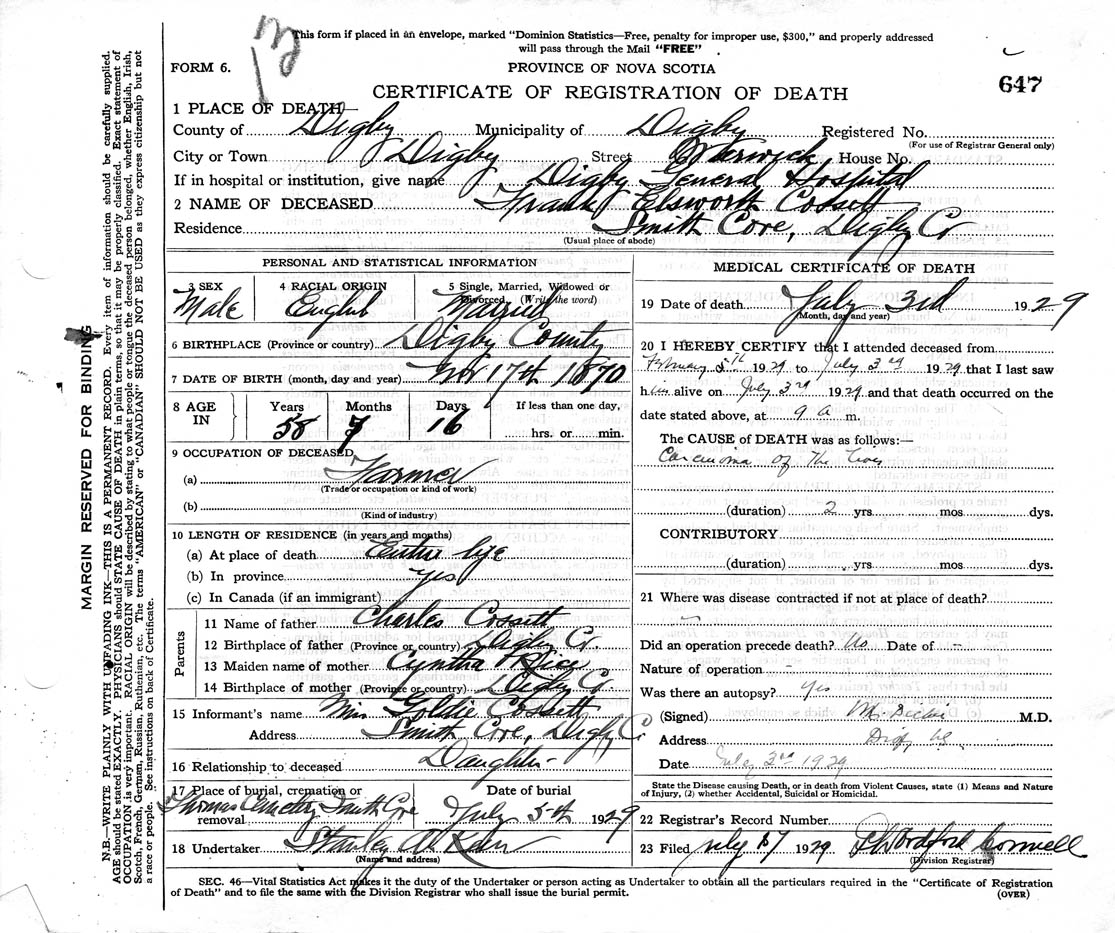 This form if placed in an envelope, marked "Dominion Statistics—Free, penalty for improper use, $300," and properly addressed
will pass through the Mail "FREE"
FORM 6. PROVINCE OF NOVA SCOTIA 647
CERTIFICATE OF REGISTRATION OF DEATH
1 PLACE OF DEATH—
County of Digby Municipality of Digby Registered No.
(For use of Registrar General only)
City or Town Digby Street House No.
If in hospital or institution, give name Digby General Hospital
2 NAME OF DECEASED Frank Elsworth Cossett
Residence Smith Cove, Digby Co
(Usual place of abode)
PERSONAL AND STATISTICAL INFORMATION
3 SEX 4 RACIAL ORIGIN 5 Single, Married, Widowed or
Divorced. (Write the word)
Male English Married
6 BIRTHPLACE (Province or country) Digby County
7 DATE OF BIRTH (month, day and year) Nov 17th 1870
8 AGE IN Years Months Days If less than one day,
58 7 16 hrs. or min.
9 OCCUPATION OF DECEASED
(a) Farmer
(Trade or occupation or kind of work)
(b)
(Kind of industry)
10 LENGTH OF RESIDENCE (in years and months)
(a) At place of death Entire life
(b) In province yes
(c) In Canada (if an immigrant)
Parents
11 Name of father Charles Cossett
12 Birthplace of father (Province or country) Digby Co.
13 Maiden name of mother Cyntha Rice
14 Birthplace of mother (Province or country) Digby Co.
15 Informant's name Miss Goldie Cossett
Address Smith Cove, Digby Co
16 Relationship to deceased Daughter
17 Place of burial, cremation or
removal Thomas Cemetery Smith Cove
Date of burial
July 5th 1929
18 Undertaker Stanley A.
(Name and address)
MEDICAL CERTIFICATE OF DEATH
19 Date of death July 3rd 1929
(Month, day and year)
20 I HEREBY CERTIFY that I attended deceased from
February 5th 1929 to July 3rd 1929 that I last saw
him alive on July 3rd 1929 and that death occurred on the
date stated above, at 9 a m.
The CAUSE of DEATH was as follows:—
Carcinoma of the liver
(duration) 2 yrs. mos dys.
CONTRIBUTORY
(duration) yrs. mos dys.
21 Where was disease contracted if not at place of death?
Did an operation precede death? No Date of —
Nature of operation —
Was there an autopsy? Yes
(Signed) M.D.
Address
Date July 3rd 1929
State the Disease causing Death, or in death from Violent Causes, state (1) Means and Nature
of Injury, (2) whether Accidental, Suicidal or Homicidal.
22 Registrar's Record Number
23 Filed July 1929
(Division Registrar)
SEC. 46—Vital Statistics Act makes it the duty of the Undertaker or person acting as Undertaker to obtain all the particulars required in the "Certificate of Registration
of Death" and to file the same with the Division Registrar who shall issue the burial permit.
(OVER)
MARGIN RESERVED FOR BINDING
N.B.—WRITE PLAINLY WITH UNFADING INK—THIS IS A PERMANENT RECORD. Every item of information should be carefully supplied.
AGE should be stated EXACTLY. PHYSICIANS should STATE CAUSE OF DEATH in plain terms, so that it may be properly classified. Exact statement of
OCCUPATION is very important. RACIAL ORIGIN will be described by stating to what people or tongue the deceased person belonged, whether English, Irish,
Scotch, French, German, Russian, Ruthenian, etc. The terms "AMERICAN" or "CANADIAN" SHOULD NOT BE USED as they express citizenship but not
a race or people. See instructions on back of Certificate.